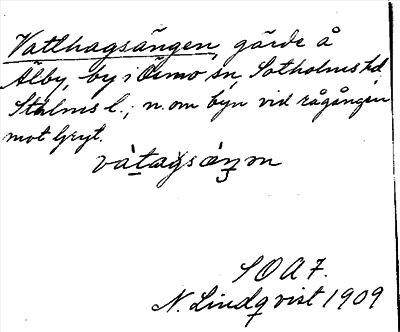 Vatthagsängen, gärde å
Älby, by i Ösmo sn, Sotholms hd,
Sthlms l.; n. om byn vid rågången
mot Gryt.
SOAF.
N. Lindqvist 1909